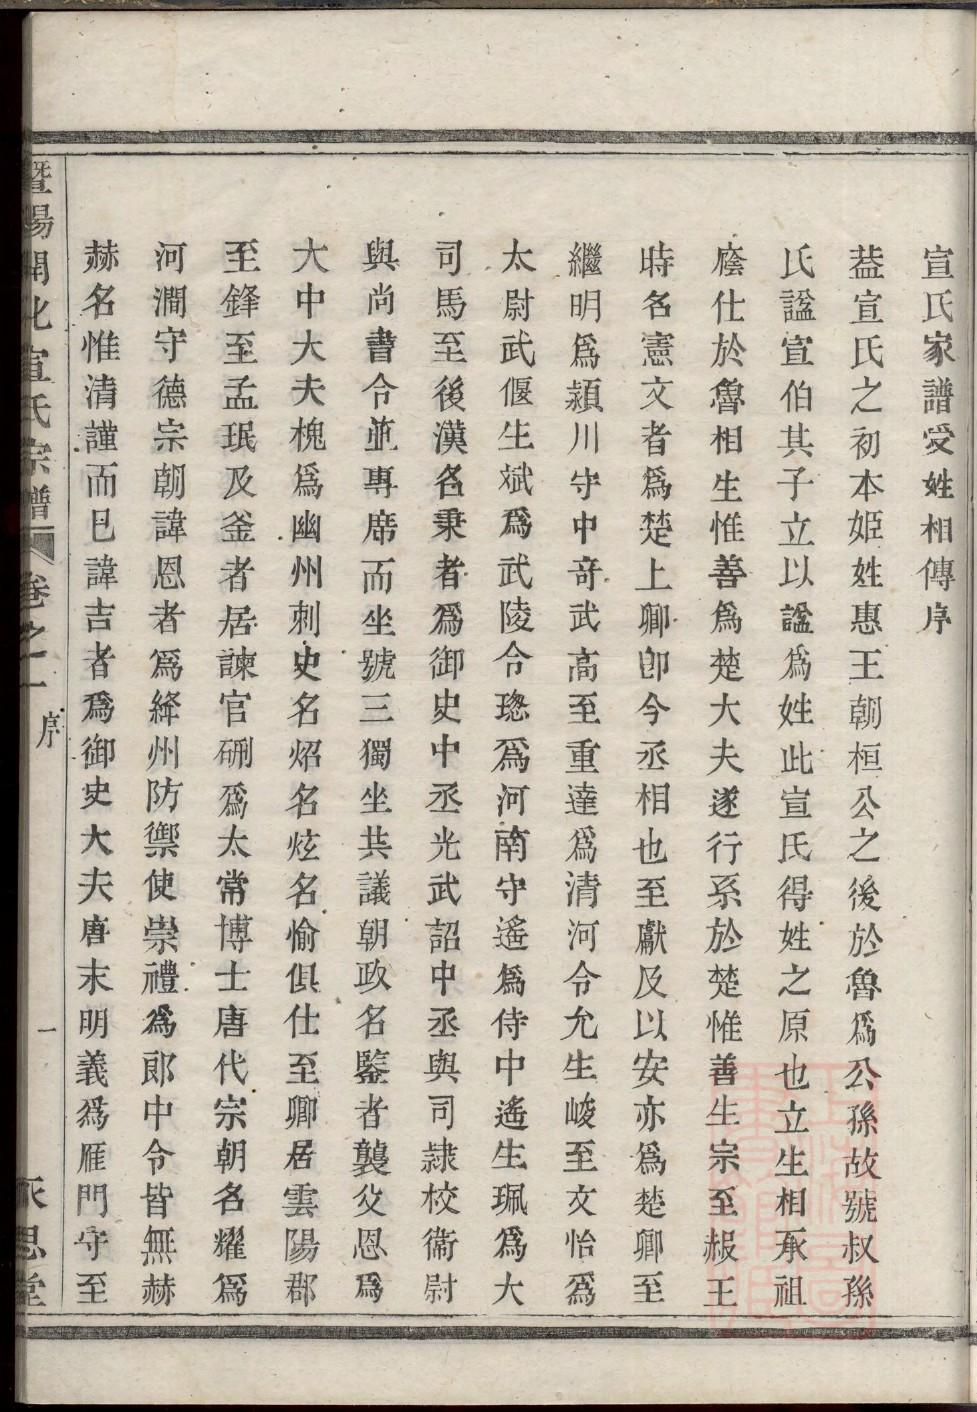 宣氏家譜受姓相傳序
葢宣氏之初本姬姓惠王朝桓公之後於魯爲公孫故號叔孫
氏諡宣伯其子立以諡爲姓此宣氏得姓之原也立生相承祖
廕仕於魯相生惟善爲楚大夫遂行系於楚惟善生宗至赧王
時名憲文者爲楚上卿卽今丞相也至獻及以安亦爲楚卿至
繼明爲頴川守中奇武高至重達爲清河令允生峻至文怡爲
太尉武偃生斌爲武陵令璁爲河南守遙爲侍中遙生珮爲大
司馬至後漢名秉者爲御史中丞光武詔中丞與司隷校衞尉
與尚書令並專席而坐號三獨坐共議朝政名鑒者襲父恩爲
大中大夫槐爲幽州刺史名炤名炫名愉俱仕至卿居雲陽郡
至鋒至孟珉及釜者居諫官硎爲太常博士唐代宗朝名耀爲
河澗守德宗朝諱恩者爲絳州防禦使崇禮爲郎中令皆無赫
赫名惟清謹而巳諱吉者爲御史大夫唐末明義爲雁門守至
暨陽開化宣氏宗譜 卷之一 序 一 永思堂